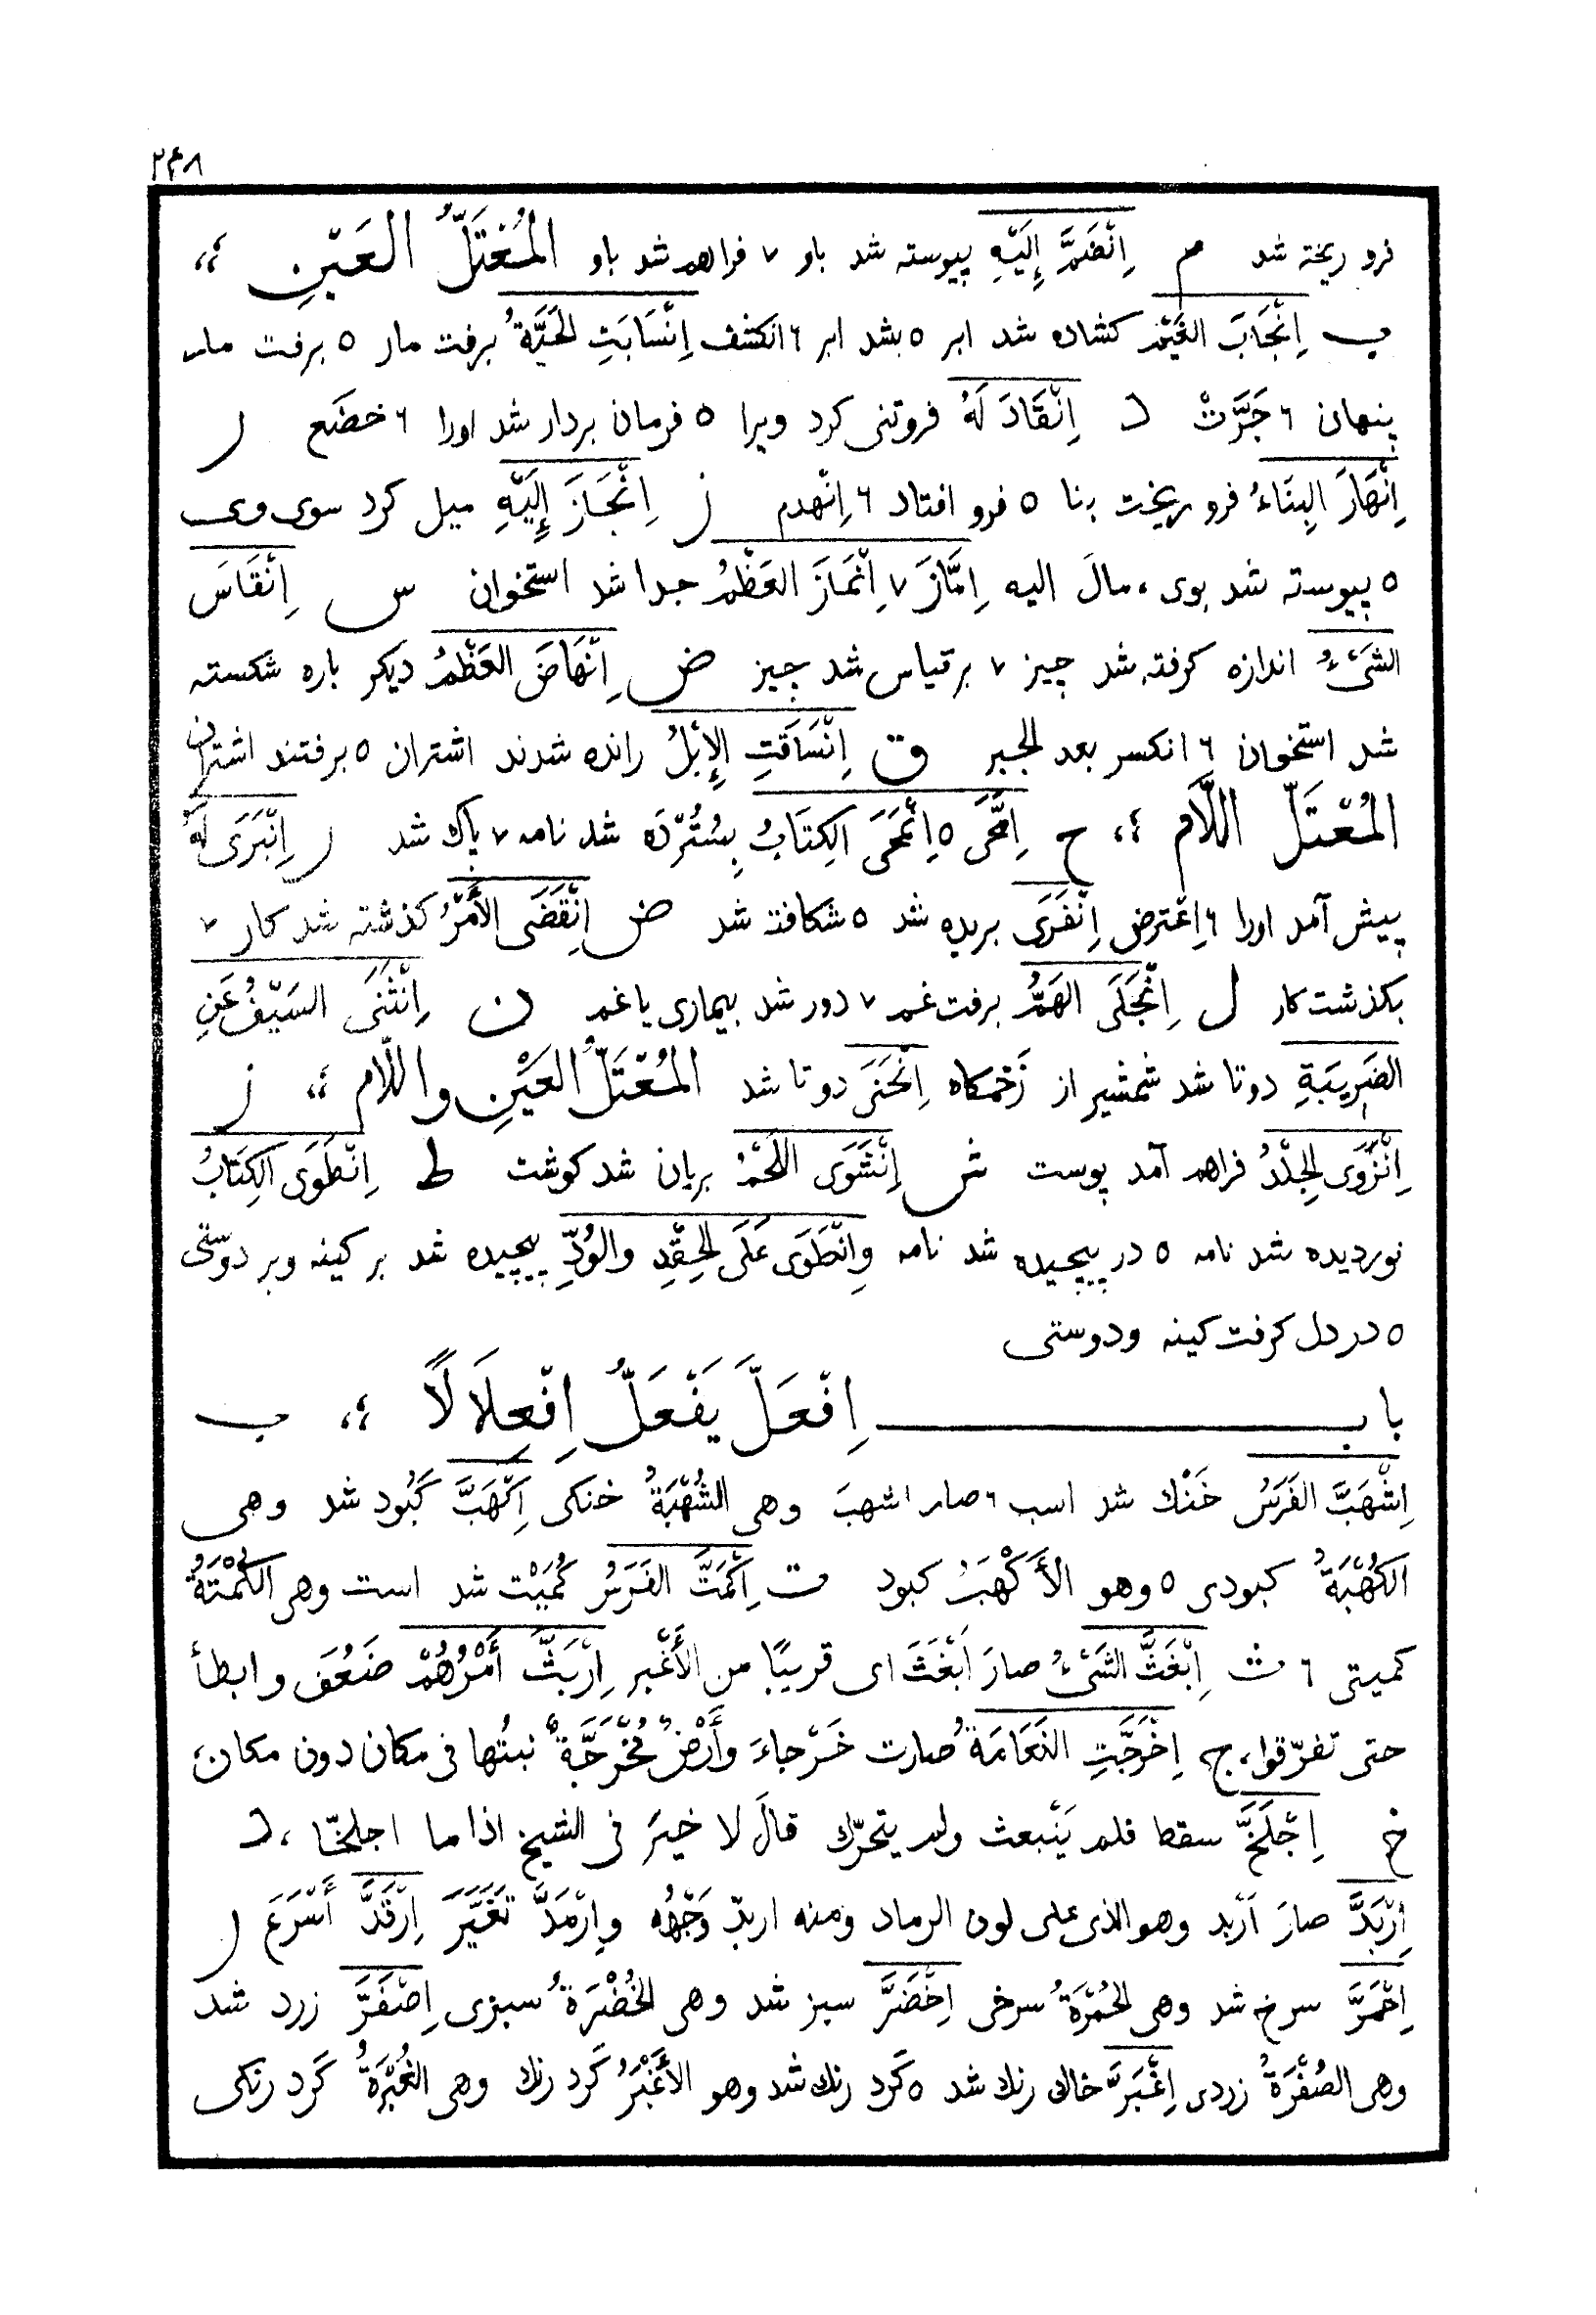 ۲۴۸
فرو ریخته شد م اِنْضَمَّ إِلَیْهِ پیوسته شد باو ۷ فراهم شد باو المُعْتَلُّ العَیْنِ ؛،
ب اِنْجَابَ الغَیْمُ کشاده شد ابر ٥ بشد ابر ٦ انکشف اِنْسَابَتِ الحَیَّةُ برفت مار ٥ برفت مار
پنهان ٦ جَرَتْ د اِنْقَادَ لَهُ فروتنی کرد ویرا ٥ فرمان بردار شد اورا ٦ خضَع ر
اِنْهَارَ البِنَاءُ فرو ریخت بنا ٥ فرو افتاد ٦ اِنْهدم ز اِنْحَازَ إِلَیْهِ میل کرد سوی وی
٥ پیوسته شد بوی ، مالَ الیه اِمَّازَ ۷ اِنْمَازَ العَظْمُ جدا شد استخوان س اِنْقَاسَ
الشَیْءُ اندازه کرفته شد چیز ۷ بر قیاس شد چیز ض اِنْهَاضَ العَظْمُ دیکر باره شکسته
شد استخوان ٦ انکسر بعد الجبر ق اِنْسَاقَتِ الإِبْلُ رانده شدند اشتران ٥ برفتند اشتران
المُعْتَلّ اللَّام ؛، ح اِمَّحَی ٥ اِنْمَحَی الکِتَابُ بِسُتُرْدَه شد نامه ۷ پاک شد ر اِنْبَرَی لَهُ
پیش آمد اورا ٦ اِعْترض اِنْفَرَی بریده شد ٥ شکافته شد ض اِنْقَضَی الأَمْرُ کذشته شد کار ۷
بکذشت کار ل اِنْجَلَی الهَمُّ برفت غم ۷ دور شد بیماری یا غم ن اِنْثَنَی السَیْفُ عَنِ
الضَرِیبَةِ دوتا شد شمشیر از زَخمکاه اِنْحَنَی دوتا شد المُعْتَلُّ العَیْنِ واللّام ؛، ز
اِنْزَوَی الجِلْدُ فراهم آمد پوست ش اِنْشَوَی اللَحْمُ بریان شد کوشت ط اِنْطَوَی الکِتَابُ
نوردیده شد نامه ٥ در پیچیده شد نامه وانْطَوَی عَلَی الحِقْدِ والوُدِّ پیچیده شد بر کینه وبر دوستی
٥ در دل کرفت کینه ودوستی
باب اِفْعَلَّ یَفْعَلُّ اِفْعِلَالًا ؛، ب
اِشْهَبَّ الفَرَسُ خَنْک شد اسب ٦ صار اشهبَ وهی الشُهْبَةُ خنکی اِکْهَبَّ کَبُود شد وهی
الکُهْبَةُ کبودی ٥ وهو الأَکْهَبُ کبود ت اِکْمَتَّ الفَرَسُ کُمَیْت شد است وهی الکُمْتَةُ
کمیتی ٦ ث اِبْغَثَّ الشَیْءُ صارَ اَبْغَثَ ای قریبًا من الأَغْبر اِرْبَثَّ أَمْرُهُمْ ضَعُفَ وابطأ
حتی تفرّقوا ، ج اِخْرَجَّتِ النَعَامَةُ صارت خَرْجاءَ وأَرْضٌ مُخْرَجَّةٌ نبتُها فی مکان دون مکان ،
خ اِجْلَخَّ سقط فلم یَنْبعث ولم یتحرّک قالَ لا خیرَ فی الشیخ اذا ما اجلخّا ، د
اِرْبَدَّ صارَ اَرْبد وهو الذی علی لون الرماد ومنه اربدّ وَجْهُه وارْمَدَّ تَغَیَّرَ اِرْقَدَّ أَسْرَعَ ر
اِحْمَرَّ سرخ شد وهی الحُمْرَةُ سرخی اِخْضَرَّ سبز شد وهی الخُضْرَةُ سبزی اِصْفَرَّ زرد شد
وهی الصُفْرَةُ زردی اِغْبَرَّ خاک رنک شد ٥ کَرد رنک شد وهو الأَغْبَرُ کَرد رنک وهی الغُبْرَةُ کَرد رنکی